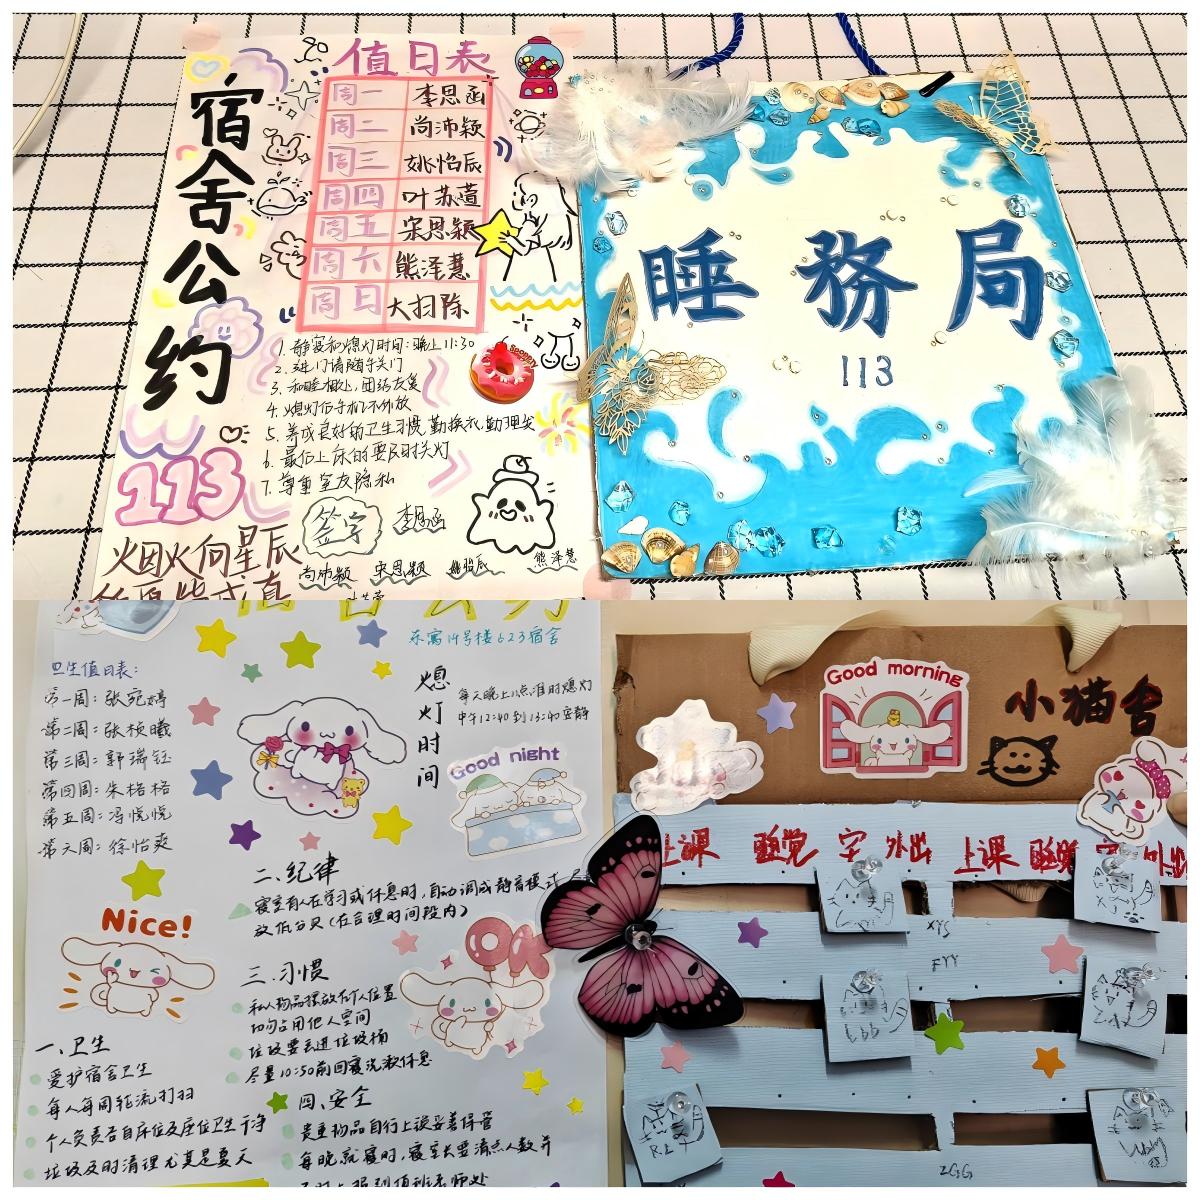 宿舍公约
值日表
周一 李思函
周二 尚沛颖
周三 姚怡辰
周四 叶苏萱
周五 宋思颖
周六 熊泽慧
周日 大扫除
1. 静寝和熄灯时间:晚上11:30
2. 进门请随手关门
3. 和睦相处,团结友爱
4. 熄灯后手机不外放
5. 养成良好的卫生习惯,勤换衣,勤理发
6. 最后上床的要及时关灯
7. 尊重室友隐私
113
签字
李思函
尚沛颖 宋思颖 姚怡辰 熊泽慧
烟火向星辰
睡務局
113
东寓14号楼623宿舍
卫生值日表:
第一周:张宛婷
第二周:张桢曦
第三周:郭瑞钰
第四周:朱格格
第五周:冯悦悦
第六周:徐怡爽
熄灯时间
每天晚上11点准时熄灯
中午12:40到13:40安静
Good night
Nice!
二、纪律
寝室有人在学习或休息时,自动调成静音模式
放低分贝(在合理时间段内)
三、习惯
私人物品摆放在个人位置
切勿占用他人空间
垃圾要丢进垃圾桶
尽量10:50前回寝洗漱休息
OK
一、卫生
爱护宿舍卫生
每人每周轮流打扫
个人负责各自床位及座位卫生干净
垃圾及时清理尤其是夏天
四、安全
贵重物品自行上锁妥善保管
每晚就寝时,寝室长要清点人数并
Good morning
小猫舍
上课 睡觉 字 外出 上课 睡觉
XYS
FYY
ZGG